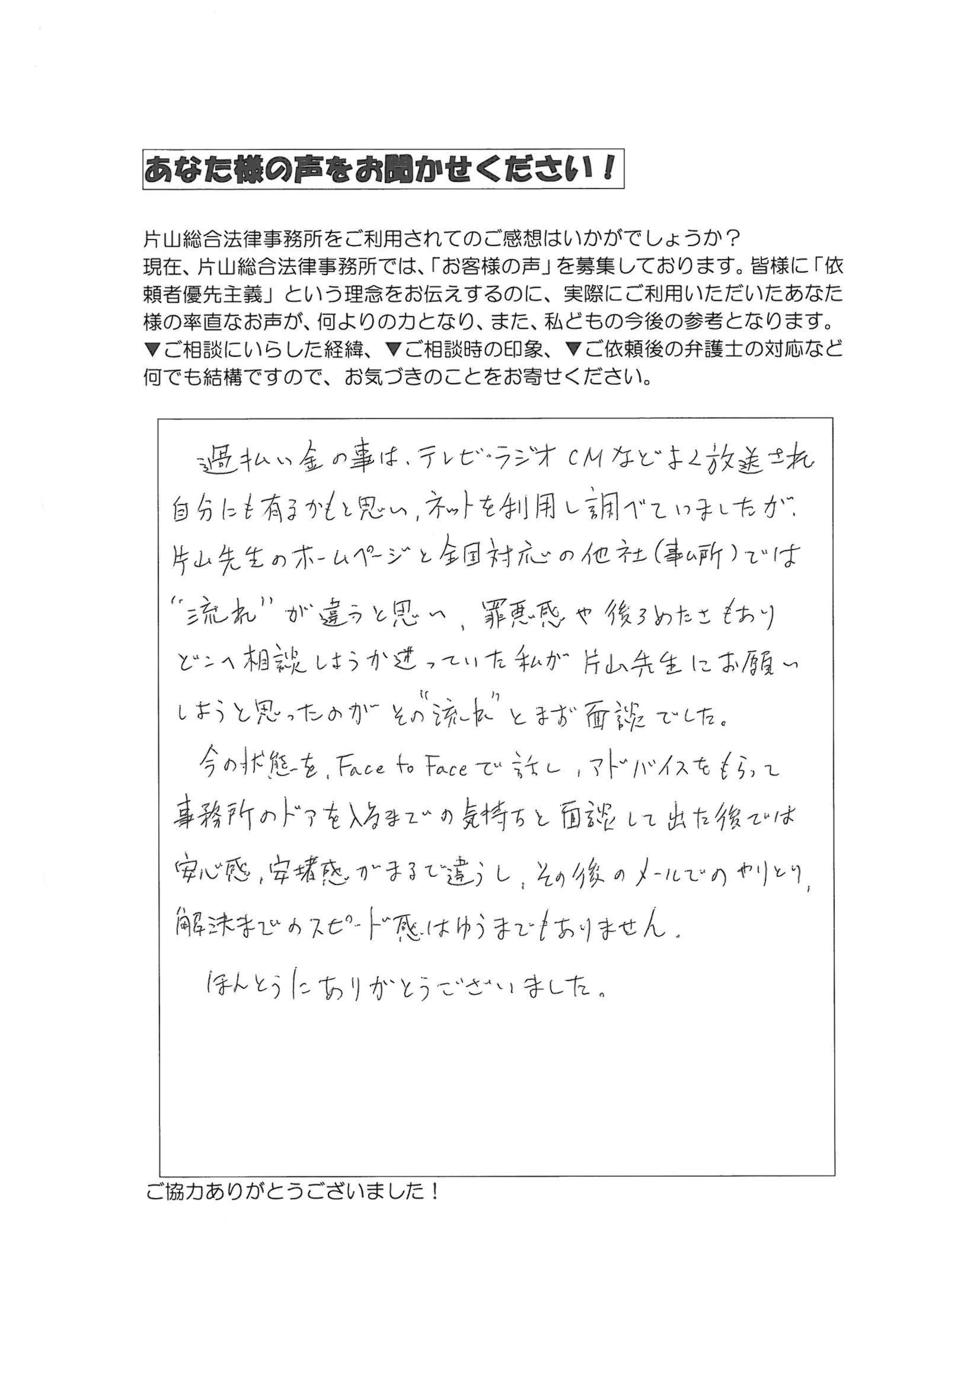 あなた様の声をお聞かせください！
片山総合法律事務所をご利用されてのご感想はいかがでしょうか？
現在、片山総合法律事務所では、「お客様の声」を募集しております。皆様に「依
頼者優先主義」という理念をお伝えするのに、実際にご利用いただいたあなた
様の率直なお声が、何よりの力となり、また、私どもの今後の参考となります。
▼ご相談にいらした経緯、▼ご相談時の印象、▼ご依頼後の弁護士の対応など
何でも結構ですので、お気づきのことをお寄せください。
過払い金の事は、テレビ・ラジオCMなどよく放送され
自分にも有るかもと思い、ネットを利用し調べていましたが、
片山先生のホームページと全国対応の他社(事ム所)では
"流れ"が違うと思い、罪悪感や後ろめたさもあり
どこへ相談しようか迷っていた私が片山先生にお願い
しようと思ったのがその"流れ"とまず面談でした。
今の状態を、Face to Faceで話し、アドバイスをもらって
事務所のドアを入るまでの気持ちと面談して出た後では
安心感、安堵感がまるで違うし、その後のメールでのやりとり、
解決までのスピード感はゆうまでもありません。
ほんとうにありがとうございました。
ご協力ありがとうございました！